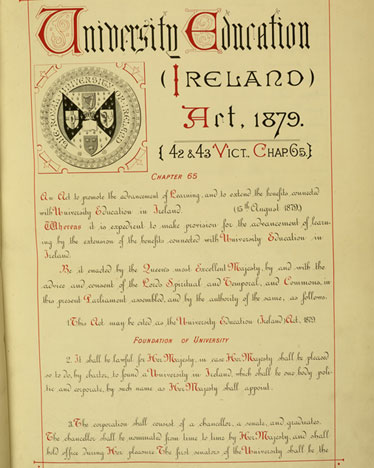 University Education
(IRELAND)
Act, 1879.
{42 & 43 VICT., CHAP. 65.}
THE ROYAL UNIVERSITY OF IRELAND
CHAPTER 65
An Act to promote the advancement of Learning, and to extend the benefits connected
with University Education in Ireland. (15th August 1879)
Whereas it is expedient to make provision for the advancement of learn-
ing by the extension of the benefits connected with University Education in
Ireland
Be it enacted by the Queen's most Excellent Majesty, by and with the
advice and consent of the Lords Spiritual and Temporal, and Commons, in
this present Parliament assembled, and by the authority of the same, as follows:
1 This Act may be cited as the University Education (Ireland) Act, 1879
FOUNDATION OF UNIVERSITY
2. It shall be lawful for Her Majesty, in case Her Majesty shall be pleased
so to do, by charter, to found a University in Ireland, which shall be one body poli-
tic and corporate, by such name as Her Majesty shall appoint.
3. The corporation shall consist of a chancellor, a senate, and graduates.
The chancellor shall be nominated from time to time by Her Majesty, and shall
hold office during Her pleasure The first senators of the University shall be the